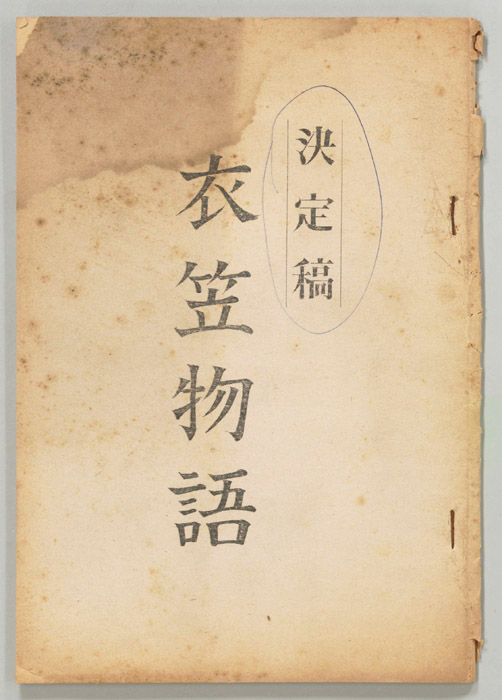 決定稿
衣笠物語